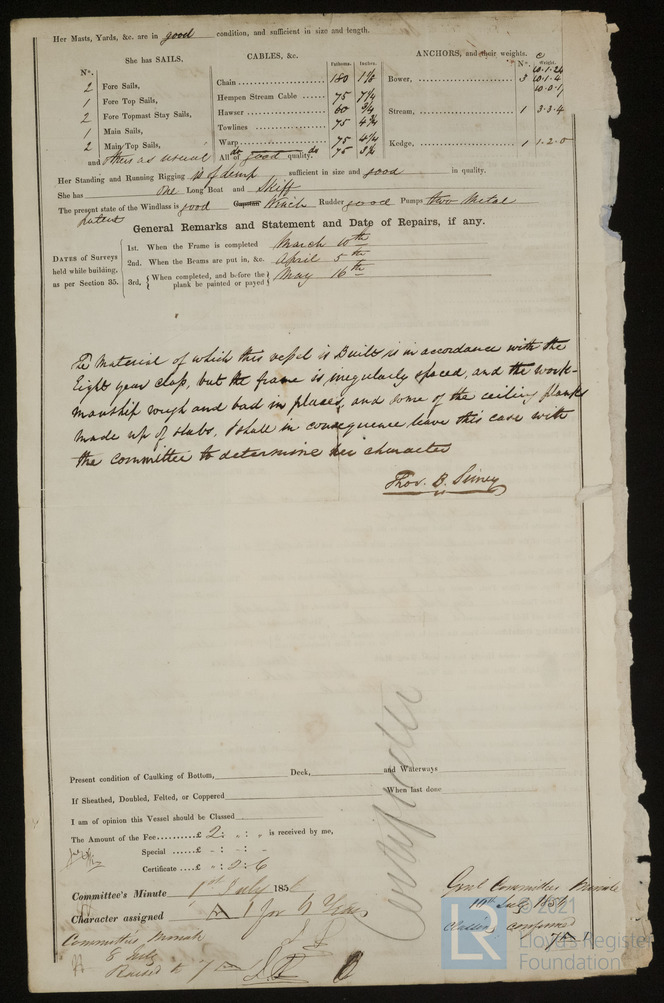 Her Masts, Yards, &c. are in good condition, and sufficient in size and length.
She has SAILS.
CABLES, &c.
ANCHORS, and their weights.
Nº.
Fathoms. Inches.
Nº. Weight.
2 Fore Sails,
1 Fore Top Sails,
2 Fore Topmast Stay Sails,
1 Main Sails,
2 Main Top Sails,
and others as usual
Chain 180
Hempen Stream Cable 75 7½
Hawser 60
Towlines 75
Warp 75
All of good quality.
Bower, 3 10.1.24
10.1.4
10.0.17
Stream, 1 3.3.4
Kedge, 1 1.2.0
Her Standing and Running Rigging is of hemp sufficient in size and good in quality.
She has one Long Boat and Skiff
The present state of the Windlass is good Capstan Winch Rudder good Pumps two Metal
patent
General Remarks and Statement and Date of Repairs, if any.
DATES of Surveys held while building, as per Section 35.
1st. When the Frame is completed March 10th
2nd. When the Beams are put in, &c. April 5th
3rd. When completed, and before the plank be painted or payed May 16th
The Material of which this vessel is Built is in accordance with the
Eight year class, but the frame is irregularly spaced, and the work-
manship rough and bad in places, and some of the ceiling planks
made up of slabs, I shall in consequence leave this case with
the committee to determine her character
Thos. B.
Present condition of Caulking of Bottom, Deck, and Waterways
If Sheathed, Doubled, Felted, or Coppered When last done
I am of opinion this Vessel should be Classed
The Amount of the Fee £ 2 : " : " is received by me,
Special £ " : - : "
Certificate £ " : 2 : 6
Committee's Minute 1st July 185
Character assigned A 1 for 4 Years
Committee's Minute
8 July
Raised to 7 A
Certificate
Genl Committee's Minute
10th July 185
classing confirmed
7 A 1
LR
© 2021
Lloyd's Register
Foundation